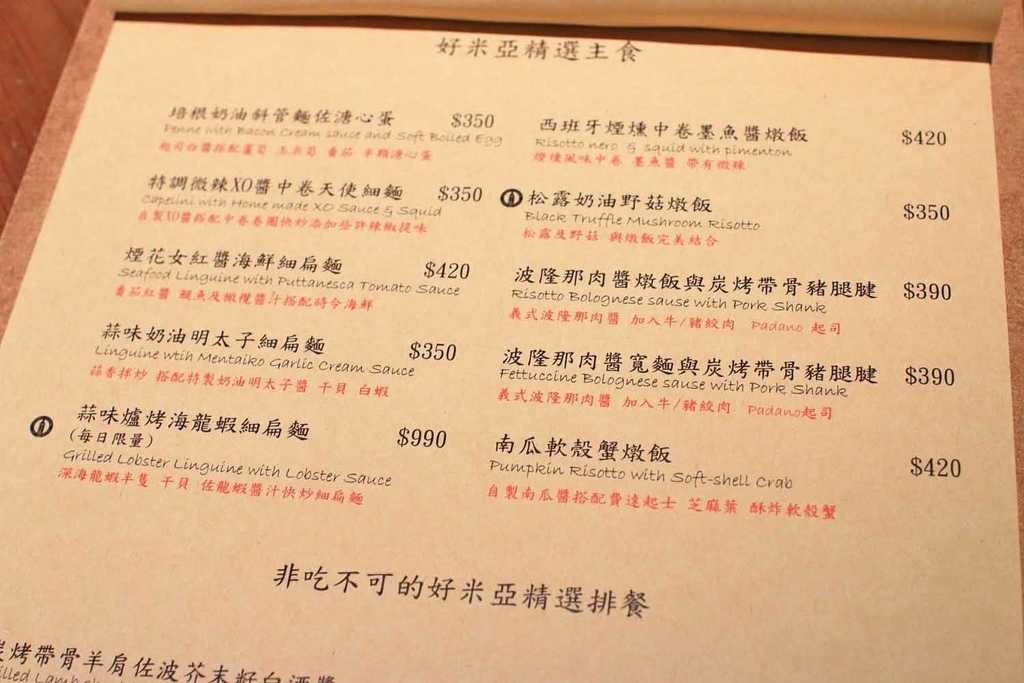 好米亞精選主食
培根奶油斜管麵佐溏心蛋 $350
Penne with Bacon Cream sauce and Soft Boiled Egg
起司白醬搭配蘆筍 玉米筍 番茄 半顆溏心蛋
特調微辣XO醬中卷天使細麵 $350
Capelini with Home made XO Sauce & Squid
自製XO醬搭配中卷卷圈快炒添加些許辣椒提味
煙花女紅醬海鮮細扁麵 $420
Seafood Linguine with Puttanesca Tomato Sauce
番茄紅醬 鯷魚及橄欖醬汁搭配時令海鮮
蒜味奶油明太子細扁麵 $350
Linguine wtih Mentaiko Garlic Cream Sauce
蒜香拌炒 搭配特製奶油明太子醬 干貝 白蝦
蒜味爐烤海龍蝦細扁麵 $990
(每日限量)
Grilled Lobster Linguine with Lobster Sauce
深海龍蝦半隻 干貝 佐龍蝦醬汁快炒細扁麵
西班牙煙燻中卷墨魚醬燉飯 $420
Risotto nero & squid with pimenton
煙燻風味中卷 墨魚醬 帶有微辣
松露奶油野菇燉飯 $350
Black Truffle Mushroom Risotto
松露及野菇 與燉飯完美結合
波隆那肉醬燉飯與炭烤帶骨豬腿腱 $390
Risotto Bolognese sause with Pork Shank
義式波隆那肉醬 加入牛/豬絞肉 Padano 起司
波隆那肉醬寬麵與炭烤帶骨豬腿腱 $390
Fettuccine Bolognese sause with Pork Shank
義式波隆那肉醬 加入牛/豬絞肉 Padano起司
南瓜軟殼蟹燉飯 $420
Pumpkin Risotto with Soft-shell Crab
自製南瓜醬搭配費達起士 芝麻葉 酥炸軟殼蟹
非吃不可的好米亞精選排餐
炭烤帶骨羊肩佐波芥末籽白酒醬